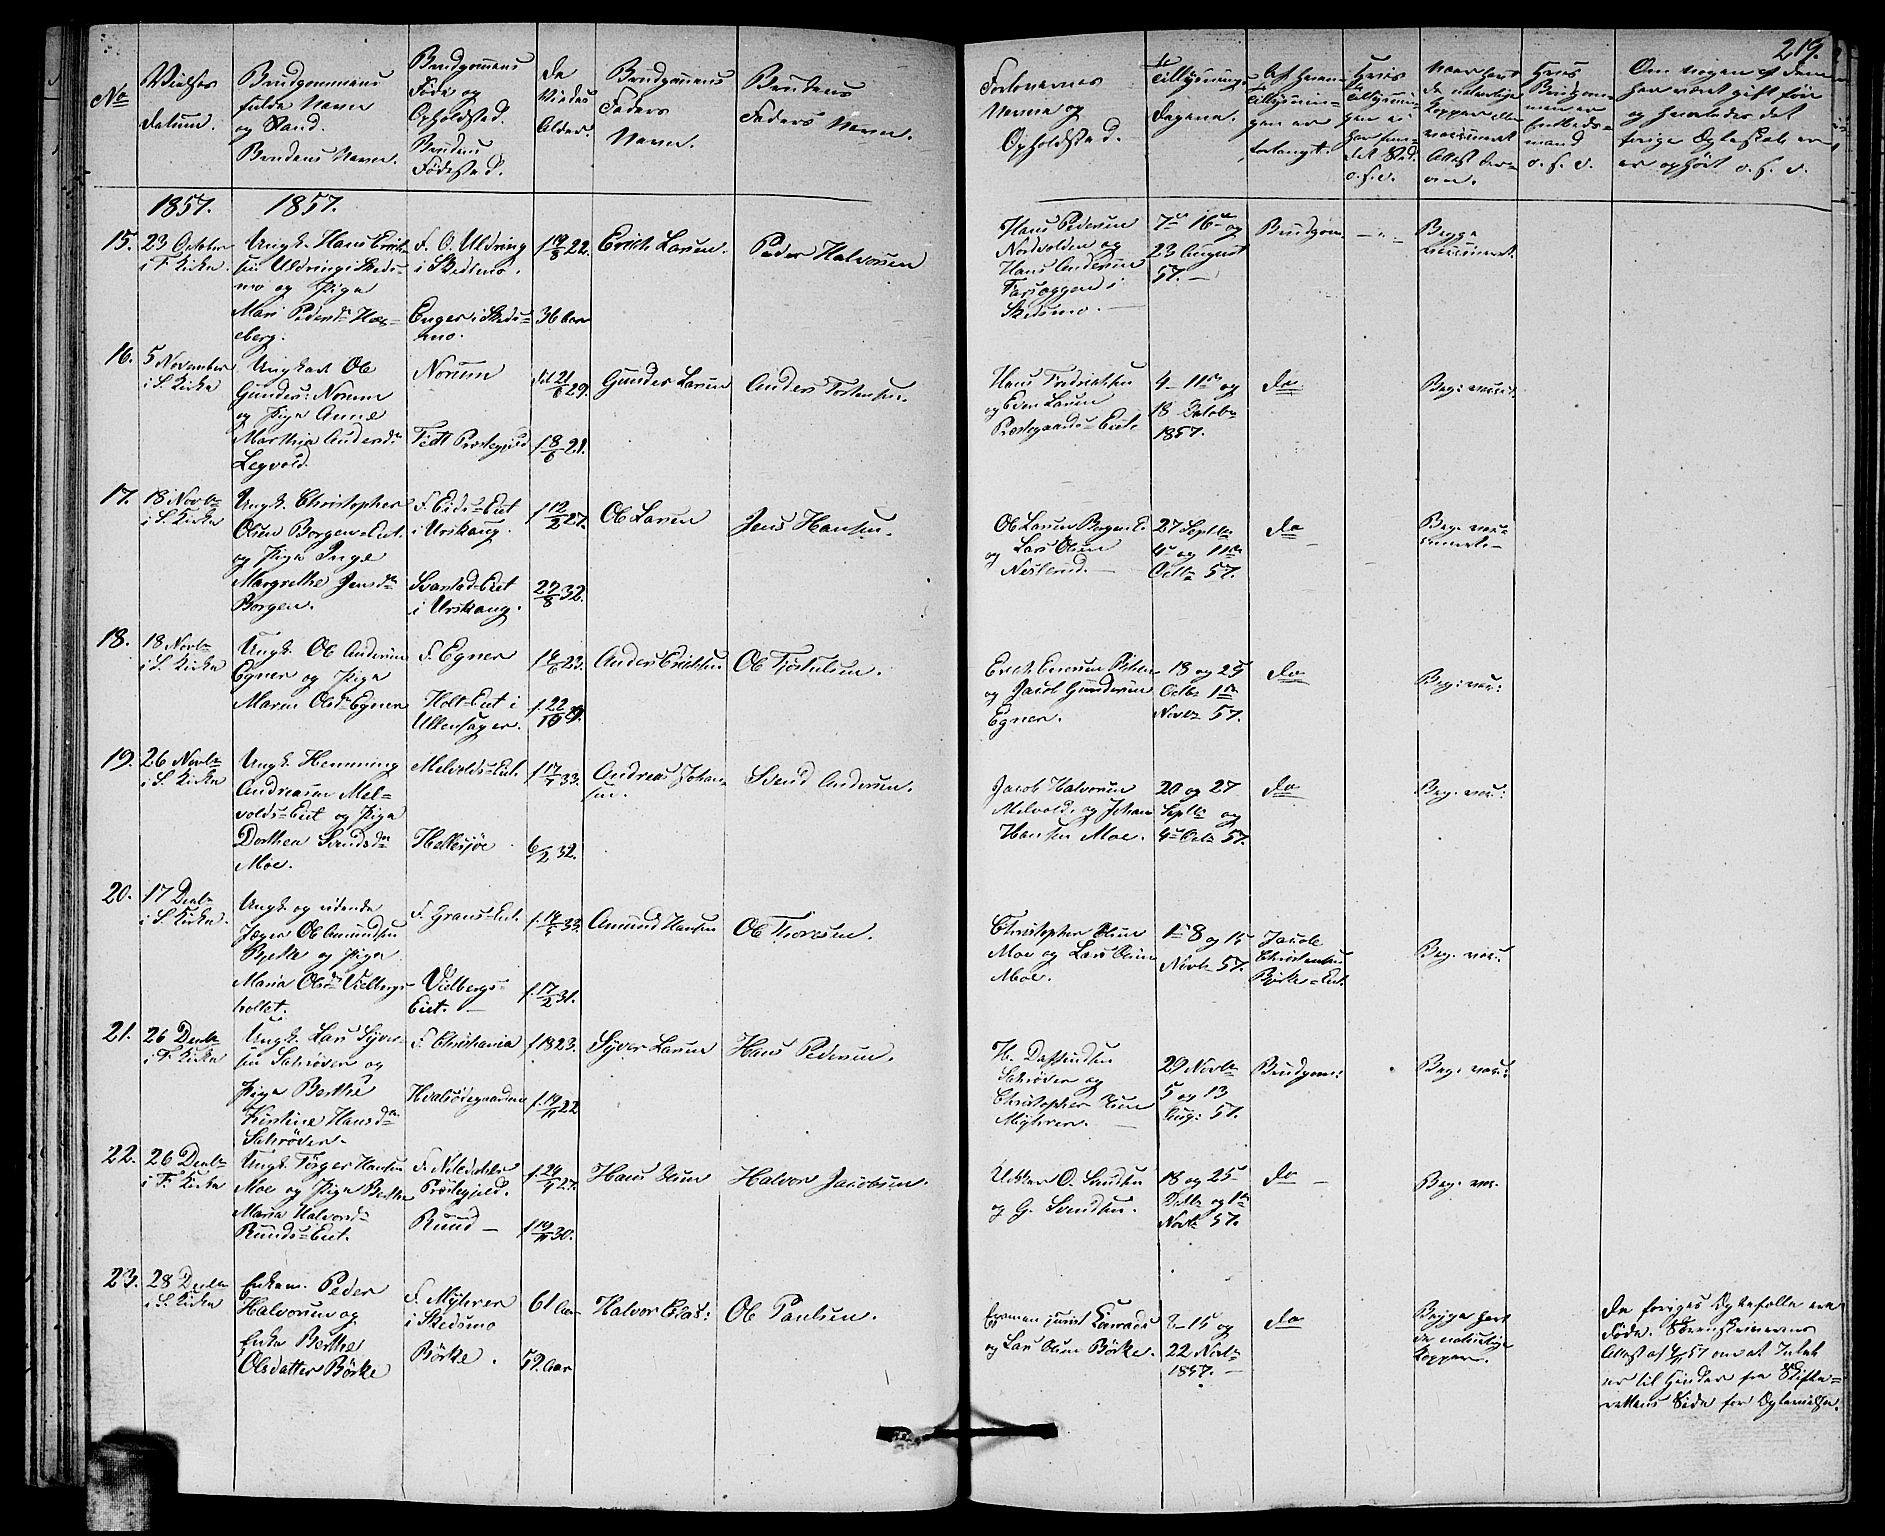 219.
No
Vielses
Datum.
Brudgommens
fulde Navn
og Stand.
Brudens Navn.
Brudgommens
Føde og
Opholdsted.
Brudens
Fødested.
De
Viedes
Alder.
Brudgommens
Faders
Navn.
Brudens
Faders Navn.
Forlovernes
Navne og
Opholdsted.
Tillysnings
Dagene.
Af hvem
Tillysnin-
gen er
forlangt.
Hvis
Tillysnin-
gen ei
har fun-
det Sted
o. s. v.
Naar havt
de naturlige
Kopper eller
vaccineret
Attest der-
om.
Hvis
Brudgom-
men er
Enkemand
o. s. v.
Om nogen af dem
har været gift før
og hvorledes det
forrige Ægteskab er
er ophört o. s. v.
1857. 1857.
15. 23 October
i F. Kirke
Ungk. Hans Erich-
sen Uldring i Skeds-
mo og Pige
Mari Pedersdr Hæ-
berg.
F. O. Uldring
i Skedsmo.
Enger i Skeds-
mo.
f 19/8 22.
36 Aar
Erich Larsen.
Peder Halvorsen
Hans Pedersen
Nordvolden og
Hans Andersen
i
Skedsmo.
7de 16de og
23 August
57.
Brudgom.
Begge
vaccineret.
16. 5 November
i S. Kirke
Ungkarl Ole
Gunders. Norum
og Pige Anne
Marthia Andersdr
Legvold.
Norum
Fedt Præstegjeld
21/6 29.
f 8/6 21.
Gunder Larsen
Anders Torstensen.
Hans Fredriksen
og Eden Larsen
Præstegaards-Eiet.
4 11te og
18 October
1857.
do
Beg: vacci:
17. 18 Novbr
i S. Kirke
Ungk. Christopher
Olsen Borgen-Eiet.
og Pige Inge
Margrethe Jensdr
Borgen.
F. Eids-Eiet
i Urskoug.
Svarstad-Eiet
i Urskoug.
f 12/2 27.
27/8 32.
Ole Larsen
Jens Hansen.
Ole Larsen Borgen E.
og Lars Olsen
27 Septbr
4de og 11te
Octbr 57.
do
Beg. vac-
cineret.
18. 18 Novbr
i S. Kirke
Ungk. Ole Andersen
Egner og Pige
Maren Olsdr Egner
F. Egner
Holt-Eiet i
Ullensager.
f 14/6 23.
f. 22/10
Anders Erichsen
Ole Tostensen.
og Jacob Gundersen
Egner.
18 og 25
Octbr 1ste
Novbr 57.
do
Beg: vac:
19. 26 Novbr
i S. Kirke
Ungk. Hemming
Andreasen Mel-
volds-Eiet og Pige
Dorthea Svendsdr
Moe.
Melvolds-Eiet.
Hellesjøe
f 17/7 33.
6/2 32.
Andreas Johan-
sen.
Svend Andersen.
Jacob Halvorsen
Melvold, og Johan
Hansen Moe.
20 og 27
Septbr og
4de Octbr 57.
do
Beg. vac:
20. 17 Decbr
i S. Kirke.
Ungk. og ridende
Jæger Ole Amundsen
Børke og Pige
Maria Olsdr Vielbergs-
holtet.
F. Grans-Eiet.
Vielbergs-
Eiet.
f. 14/5 33.
f. 17/2 31.
Amund Hansen
Ole Thoresen.
Christopher Olsen
Moe og Lars Olsen
Moe.
1ste 8 og 15
Novbr 57.
Jacob
Christensen
Börke-Eiet.
Beg. vac.
21. 26 Decbr
i F. Kirke
Ungk. Lars Syver-
sen Schrøder og
Pige Berthe
Kirstine Hansdr
Schrøder.
F. Christiania
f 1823.
f. 19/11 22
Syver Larsen
Hans Pedersen.
H.
Schrøder og
Christopher Olsen
Myhren.
29 Novbr
5 og 13
Aug: 57.
Brudgom:
Beg. vac:
22. 26 Decbr
i F. Kirke
Ungk. Torger Hansen
Moe og Pige Berthe
Maria Halvorsdr
Runds-Eiet.
F. Nitedalens
Præstegjeld.
Rund
f. 24/4 27.
f 19/11 30.
Hans Olsen
Halvor Jacobsen.
og G. Svendsen.
18 og 25
Octbr og 1ste
Novbr 57.
do
Beg. vac.
23. 28 Decbr
i S. Kirke
Enkem. Peder
Halvorsen og
Enke Berthe
Olsdatter Börke
F. Myhren
i Skedsmo
Börke.
61 Aar
52 Aar
Halvor Clas:
Ole Paulsen.
Examen jurist
og Lars Olsen Börke.
8 15 og
22 Novbr
1857.
do
Begge havt
de naturlige
Kopper.
De foriges Ægtefælle ere
døde. Sorenskriverens
Attest af 57 om at Intet
er til Hinder fra Skifte-
rettens Side for Ægtevielse.